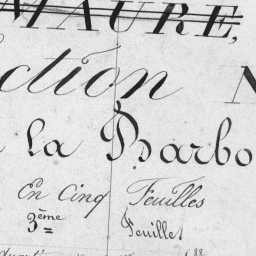 MAURE,
ction N
la Barbo
En Cinq Feuilles
3ème Feuillet